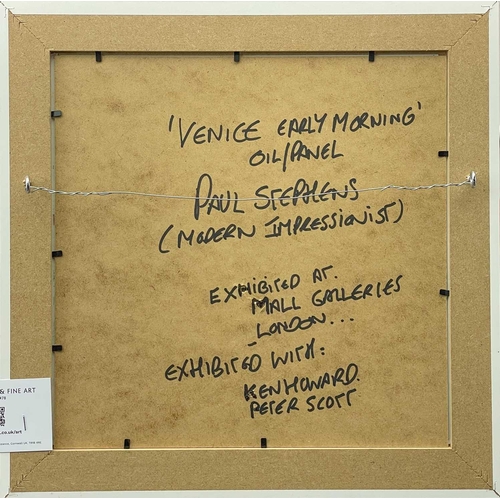 'VENICE EARLY MORNING'
OIL/PANEL
PAUL STEPHENS
(MODERN IMPRESSIONIST)
EXHIBITED AT.
MALL GALLERIES
LONDON...
EXHIBITED WITH:
KEN HOWARD.
PETER SCOTT
& FINE ART
.co.uk/art